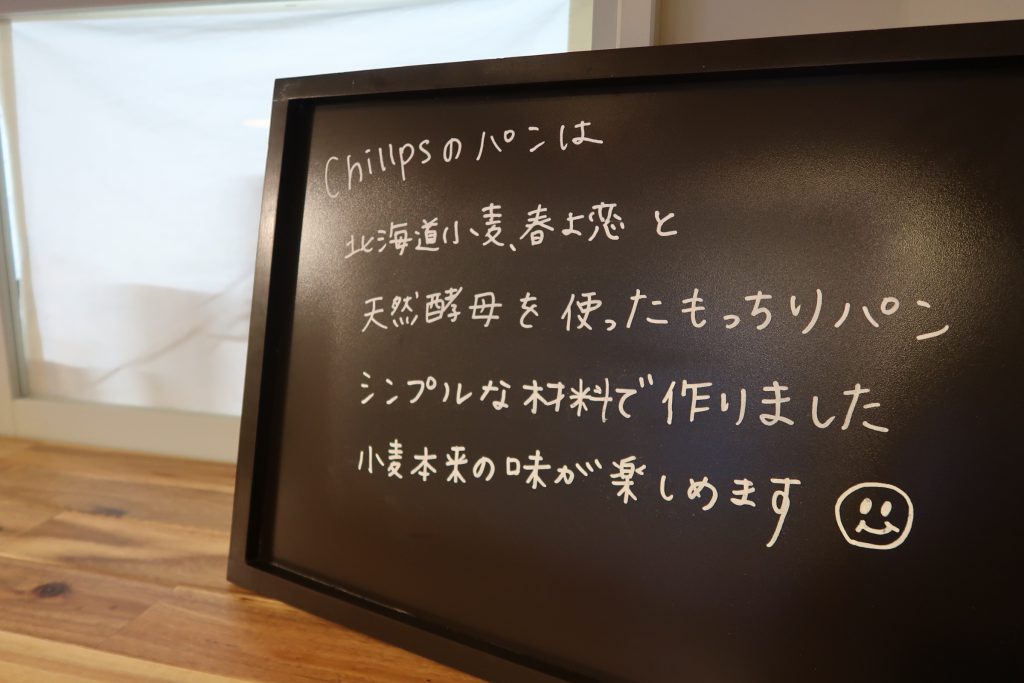 Chillpsのパンは
北海道小麦、春よ恋と
天然酵母を使ったもっちりパン
シンプルな材料で作りました
小麦本来の味が楽しめます